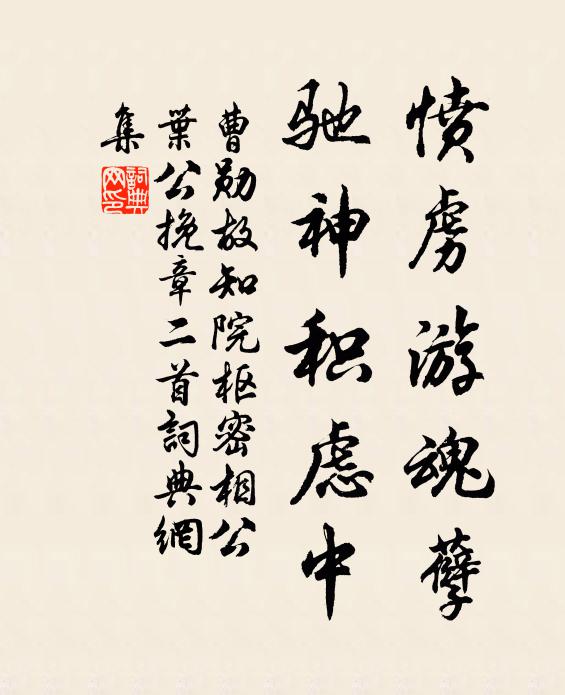 愤虏游魂孽
驰神积虑中
曹勋故知院枢密相公
葉公挽章二首詞典網
集
詞典
网印